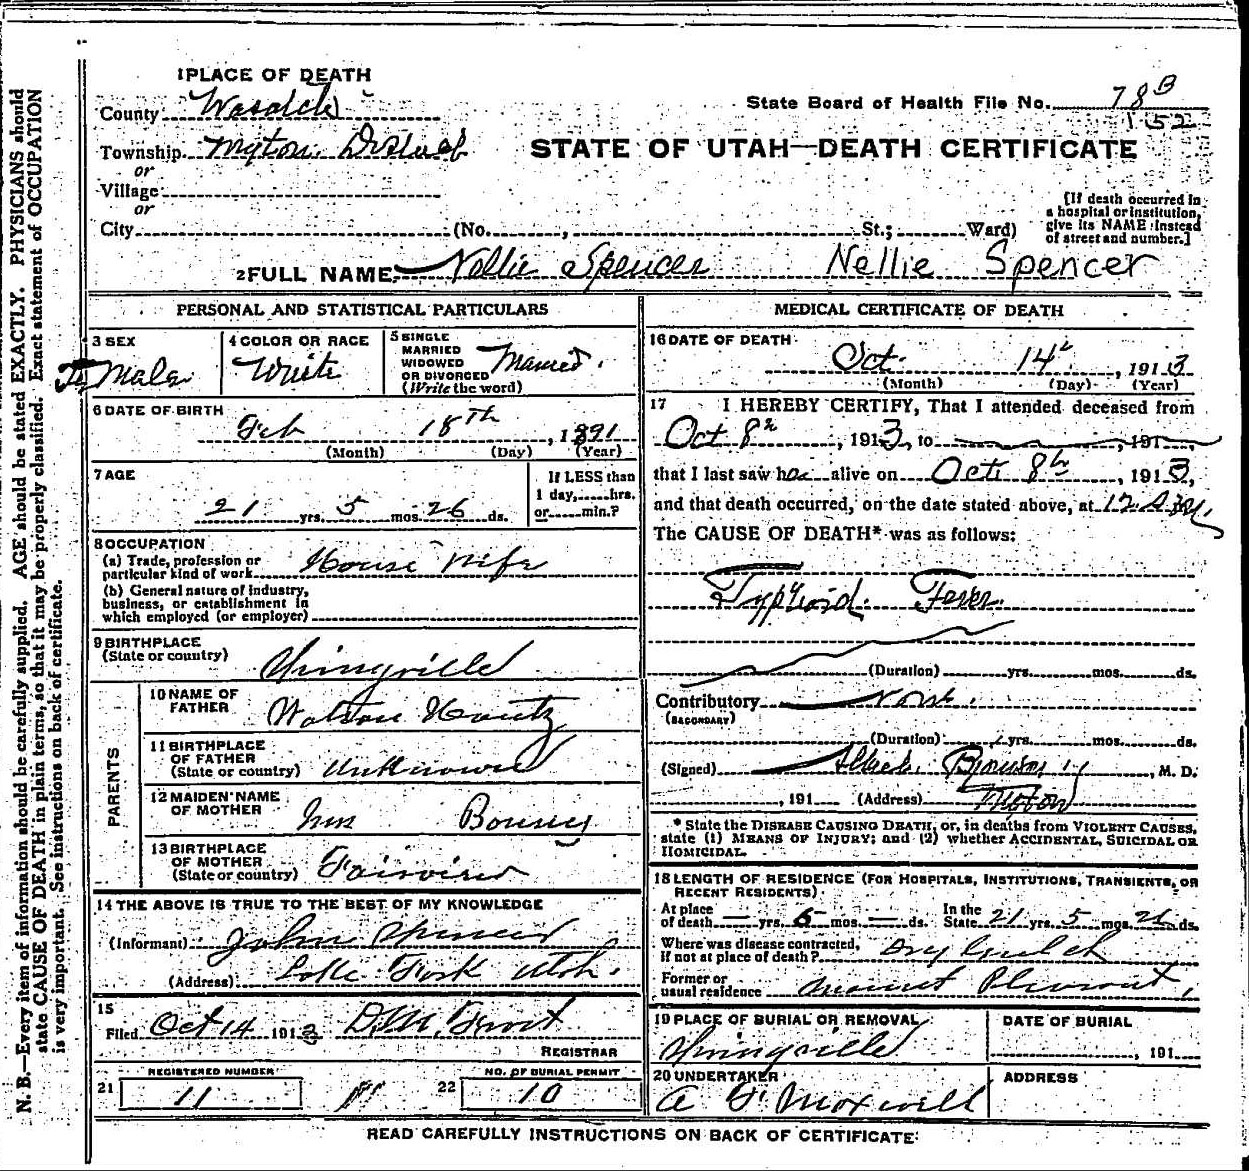 1 PLACE OF DEATH
County Wasatch
State Board of Health File No. 78B
152
Township Myton District
STATE OF UTAH—DEATH CERTIFICATE
or
Village
or
City (No. , St.; Ward)
[If death occurred in
a hospital or institution,
give its NAME instead
of street and number.]
2 FULL NAME Nellie Spencer Nellie Spencer
PERSONAL AND STATISTICAL PARTICULARS
3 SEX
Fe Male
4 COLOR OR RACE
White
5 SINGLE
MARRIED
WIDOWED
OR DIVORCED
(Write the word)
Married.
6 DATE OF BIRTH
Feb 18th, 1891
(Month) (Day) (Year)
7 AGE
21 yrs. 5 mos. 26 ds.
If LESS than
1 day, hrs.
or min.?
8 OCCUPATION
(a) Trade, profession or
particular kind of work House Wife
(b) General nature of industry,
business, or establishment in
which employed (or employer)
9 BIRTHPLACE
(State or country) Springville
PARENTS
10 NAME OF
FATHER Watson Houtz
11 BIRTHPLACE
OF FATHER
(State or country) Unknown
12 MAIDEN NAME
OF MOTHER
13 BIRTHPLACE
OF MOTHER
(State or country) Fairview
14 THE ABOVE IS TRUE TO THE BEST OF MY KNOWLEDGE
(Informant) John Spencer
(Address) Lake Fork Utah.
15
Filed Oct 14 1913
REGISTRAR
21 REGISTERED NUMBER
11
22 NO. OF BURIAL PERMIT
10
MEDICAL CERTIFICATE OF DEATH
16 DATE OF DEATH
Oct. 14th, 1913
(Month) (Day) (Year)
17 I HEREBY CERTIFY, That I attended deceased from
Oct 8th, 1913, to 191
that I last saw her alive on Oct 8th, 1913,
and that death occurred, on the date stated above, at 12
The CAUSE OF DEATH* was as follows:
Typhoid Fever
(Duration) yrs. mos. ds.
Contributory None.
(SECONDARY)
(Duration) yrs. mos. ds.
(Signed) , M. D.
, 191 (Address) Myton
* State the DISEASE CAUSING DEATH, or, in deaths from VIOLENT CAUSES,
state (1) MEANS OF INJURY; and (2) whether ACCIDENTAL, SUICIDAL OR
HOMICIDAL.
18 LENGTH OF RESIDENCE (FOR HOSPITALS, INSTITUTIONS, TRANSIENTS, OR
RECENT RESIDENTS)
At place
of death — yrs. 6 mos. — ds. In the
State 21 yrs. 5 mos. 26 ds.
Where was disease contracted,
if not at place of death? Dry Gulch
Former or
usual residence Mount Pleasant,
19 PLACE OF BURIAL OR REMOVAL
Springville
DATE OF BURIAL
, 191
20 UNDERTAKER
A G Maxwell
ADDRESS
READ CAREFULLY INSTRUCTIONS ON BACK OF CERTIFICATE:
N. B.—Every item of information should be carefully supplied. AGE should be stated EXACTLY. PHYSICIANS should
state CAUSE OF DEATH in plain terms, so that it may be properly classified. Exact statement of OCCUPATION
is very important. See instructions on back of certificate.